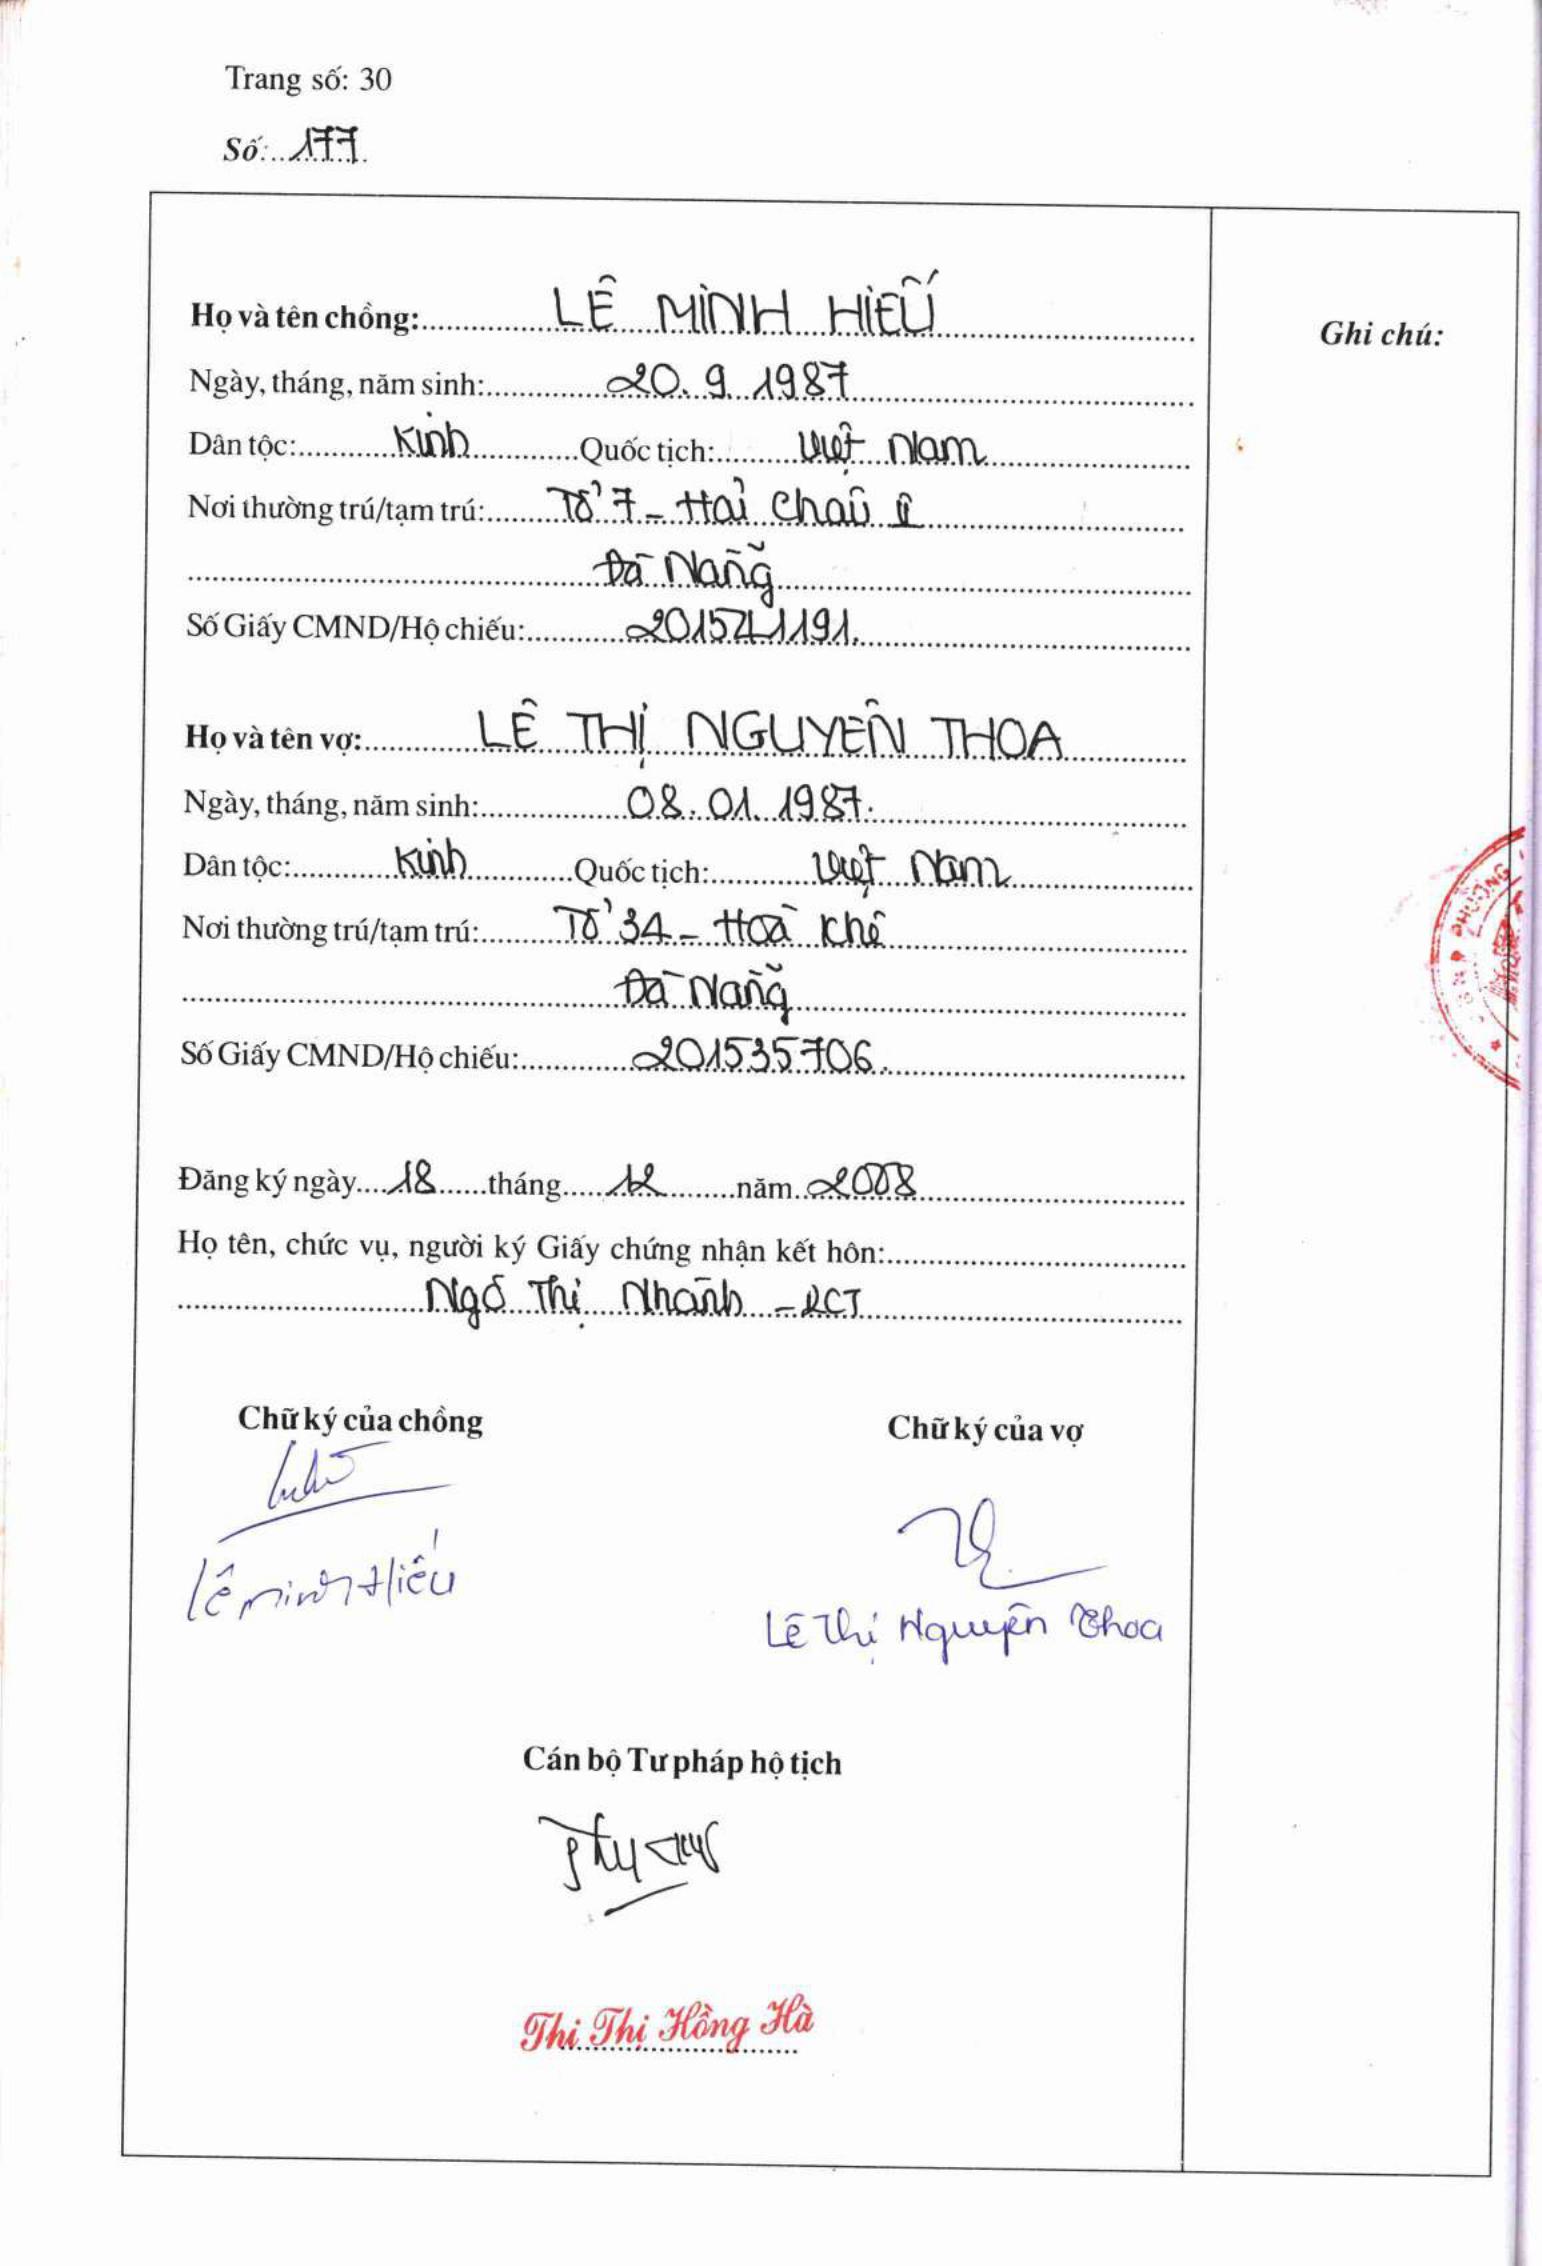 Trang số: 30
Số: 177
Họ và tên chồng: LÊ MINH HIẾU
Ghi chú:
Ngày, tháng, năm sinh: 20.9.1987
Dân tộc: Kinh Quốc tịch: Việt Nam
Nơi thường trú/tạm trú: Tổ 7 - Hải Châu II
Đà Nẵng
Số Giấy CMND/Hộ chiếu:
Họ và tên vợ: LÊ THỊ NGUYÊN THOA
Ngày, tháng, năm sinh: 08.01.1987.
Dân tộc: Kinh Quốc tịch: Việt Nam
Nơi thường trú/tạm trú: Tổ 34 - Hoà Khê
Đà Nẵng
Số Giấy CMND/Hộ chiếu: 201535706.
Đăng ký ngày 18 tháng 12 năm 2008
Họ tên, chức vụ, người ký Giấy chứng nhận kết hôn:
Ngô Thị Nhành -
Chữ ký của chồng Chữ ký của vợ
Lê Minh Hiếu
Lê Thị Nguyên Thoa
Cán bộ Tư pháp hộ tịch
Thi Thị Hồng Hà